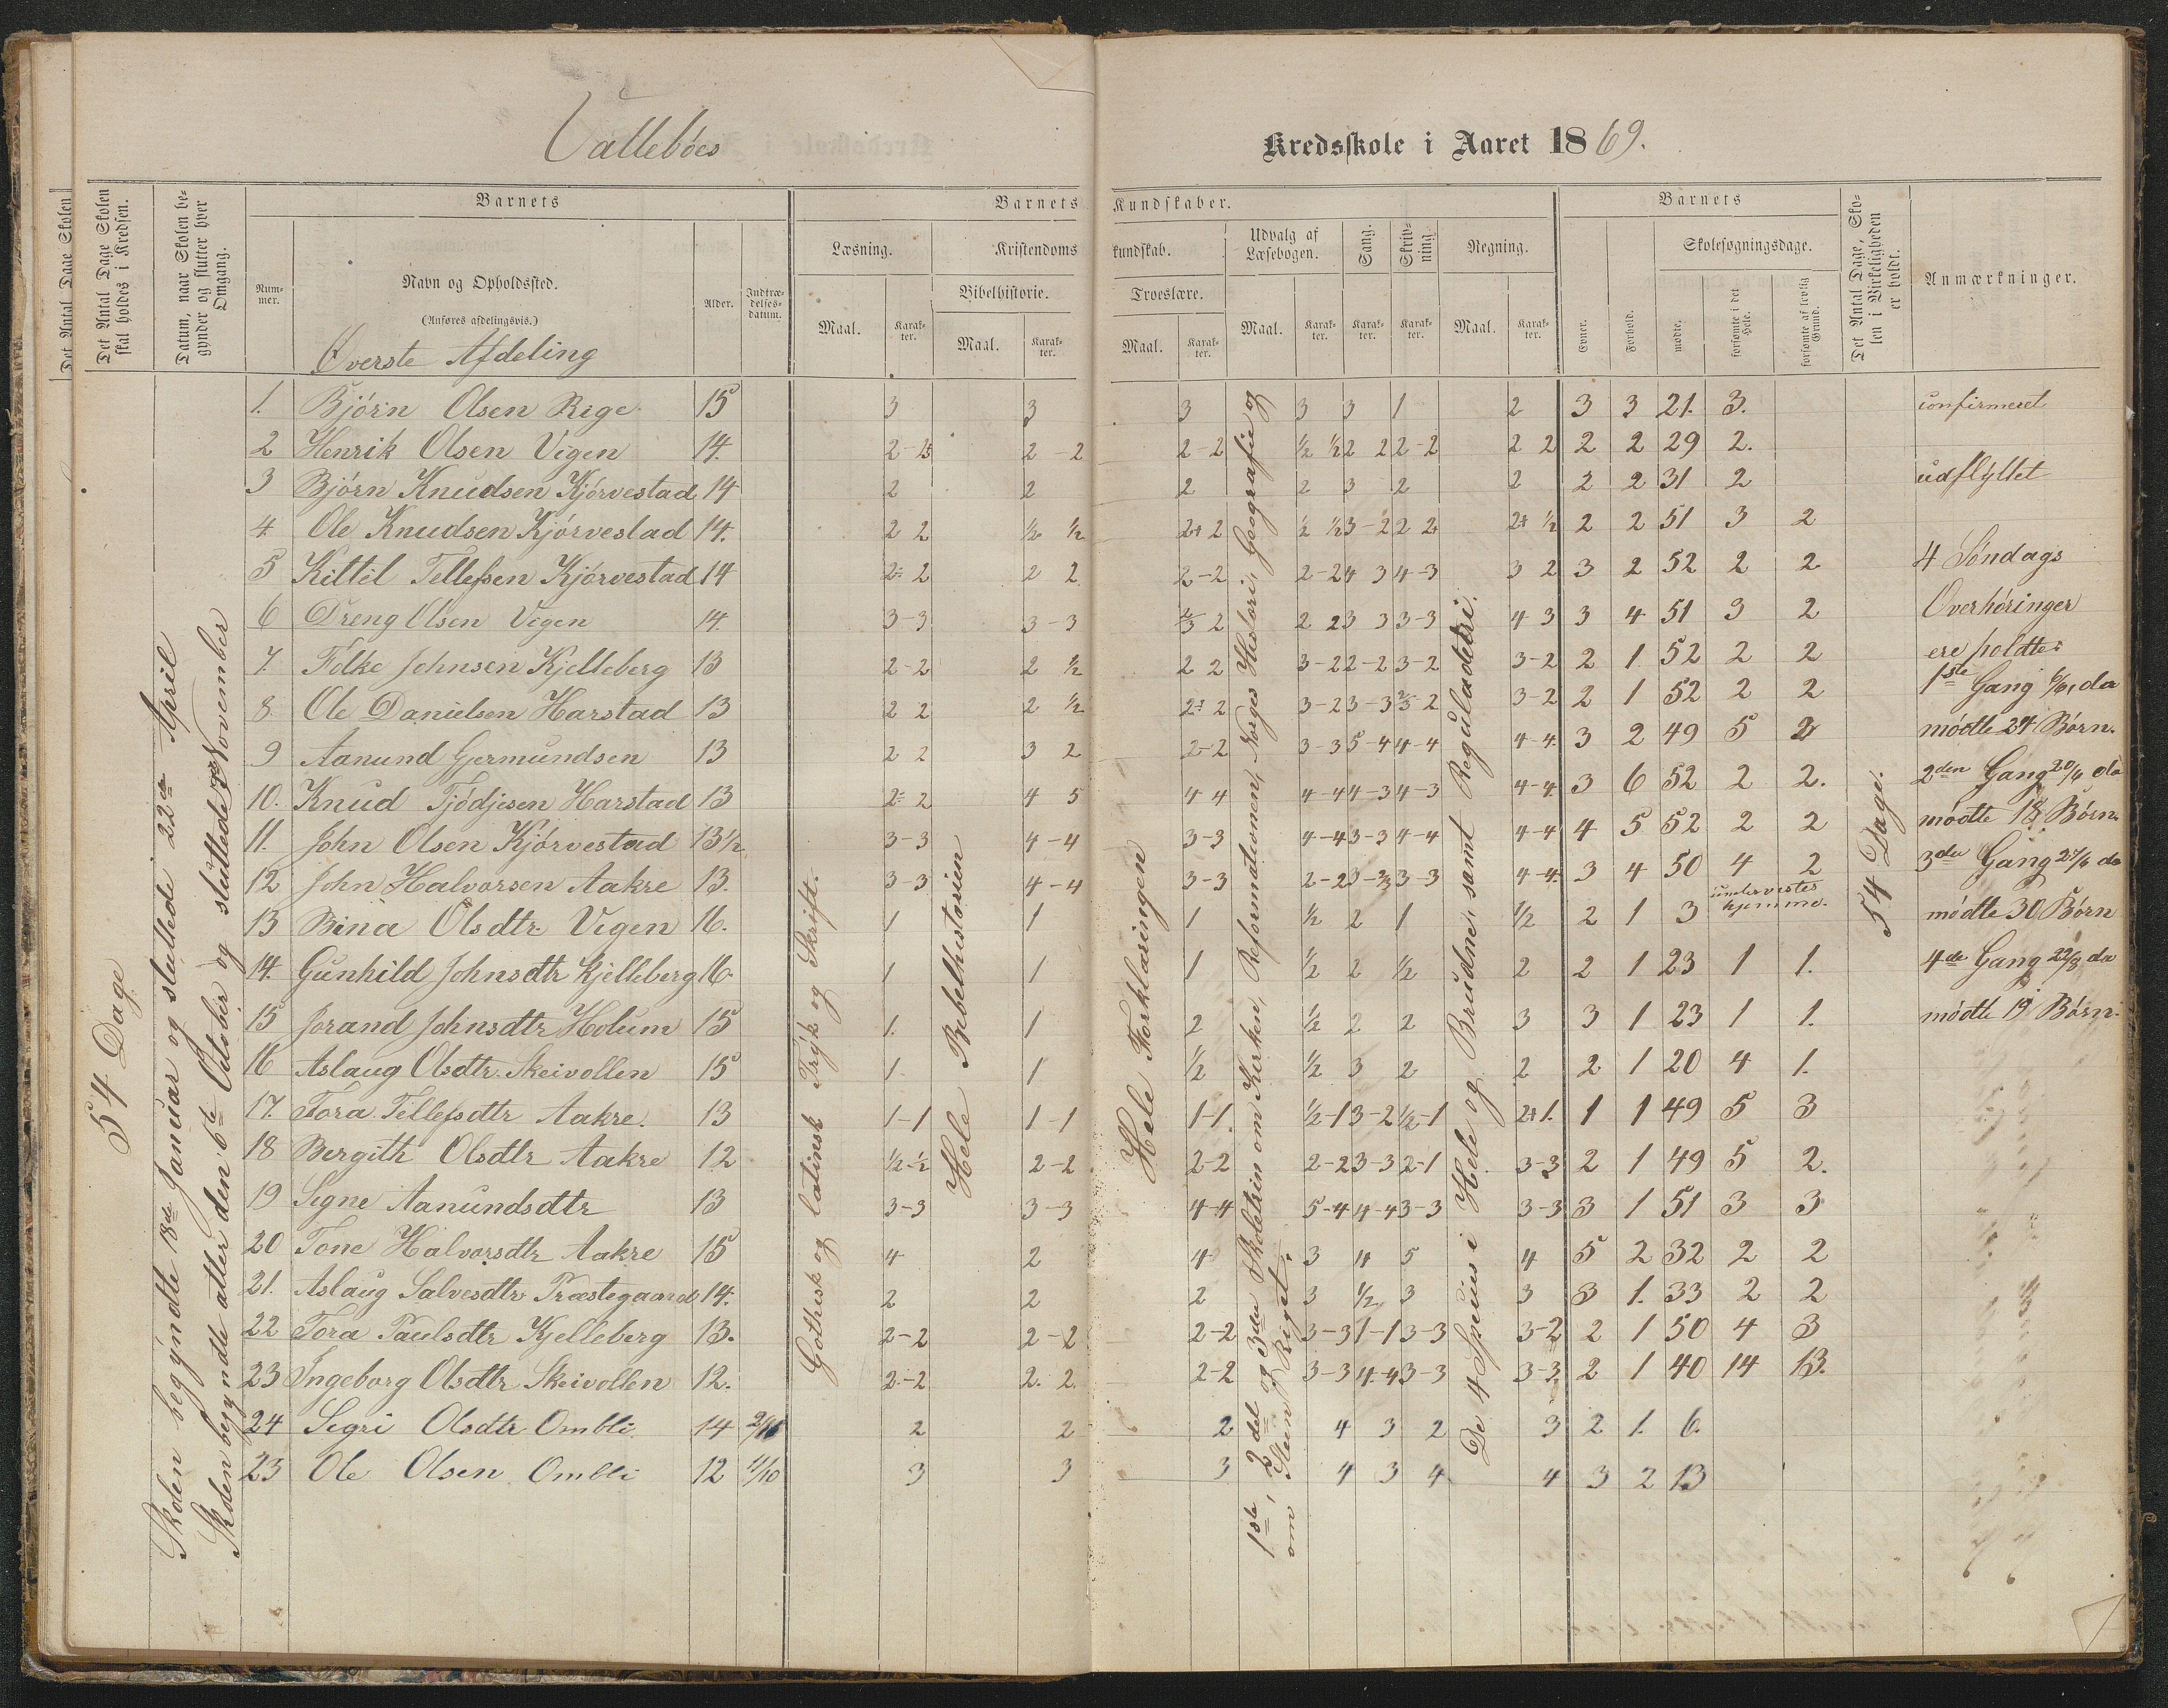 Vallebøes
Kredsskole i Aaret 1869.
Det Antal Dage Skolen
Det Antal Dage Skolen skal holdes i Kredsen.
Datum, naar Skolen begynder og slutter hver Omgang.
Barnets
Nummer.
Navn og Opholdssted.
(Anføres afdelingsvis.)
Alder.
Indtrædelsesdatum.
Barnets Kundskaber.
Læsning.
Maal.
Karakter.
Kristendomskundskab.
Bibelhistorie.
Maal.
Karakter.
Troeslære.
Maal.
Karakter.
Udvalg af Læsebogen.
Maal.
Karakter.
Sang.
Karakter.
Skrivning.
Karakter.
Regning.
Maal.
Karakter.
Barnets
Evner.
Forhold.
Skolesøgningsdage.
mødte.
forsømte i det Hele.
forsømte af lovlig Grund.
Det Antal Dage, Skolen i Virkeligheden er holdt.
Anmærkninger.
Øverste Afdeling
54 Dage
Skolen begyndte 18de Januar og sluttede 22de April
Skolen begyndte atter den 6te October og sluttede November
Gothisk og latinsk Tryk og Skrift.
Hele Bibelhistorien
Hele Forklaringen
1ste, 2det og 3die Skoletrin om Kirken, Reformationen, Norges Historie, Geografie og
om Riget.
De 4 Species i Hele og Brudne, samt Reguladetri.
54 Dage.
1. Bjørn Olsen Rige 15 3 3 3 3 3 1 2 3 3 21. 3. confirmeret
2 Henrik Olsen Vigen 14. 2-2 2-2 ½ ½ 2 2 2-2 2 2 2 2 29 2.
3 Bjørn Knudsen Kjørvestad 14 2 2 2 2 3 2 2 2 2 31 2 udflyttet
4. Ole Knudsen Kjørvestad 14. 2 2 ½ ½ 2+ 2 ½ ½ 3-2 2 2+ 2+ ½ 2 2 51 3 2
5 Kittil Tellefsen Kjørvestad 14 2 2 2 2 2-2 2-2 4 3 4-3 3 2 3 2 52 2 2 4 Søndags
6 Dreng Olsen Vigen 14. 3-3 3-3 2 2 3 3 3-3 4 3 3 4 51 3 2 Overhøringer
7. Folke Johnsen Kjelleberg 13 2-2 2 ½ 2 2 3-2 2-2 3-2 3-2 2 1 52 2 2 ere holdte:
8. Ole Danielsen Harstad 13 2 2 2 ½ 2 3-2 3-3 3-2 2 1 52 2 2 1ste Gang da
9 Aanund Gjermundsen 13 2 2 3 2 2-2 3-3 5-4 4-4 4-4 3 2 49 5 2 mødte 24 Børn.
10. Knud Harstad 13 2 2 4 5 4 4 4-4 4-3 4-3 4-4 3 6 52 2 2. 2den Gang da
11. John Olsen Kjørvestad 13½ 3-3 4-4 3-3 4-4 3-3 4-4 4-4 4 5 52 2 2 mødte 18 Børn.
12 John Halvorsen Aakre 13. 3-3 4-4 3-3 2-2 3-3 4-4 3 4 50 4 2 3die Gang 27/6 da
13 Bina Olsdtr. Vigen 16. 1 1 1 ½ 2 1 ½ 2 1 3 undervistes hjemme. mødte 30 Børn
14. Gunhild Johnsdtr Kjelleberg 16. 1 1 1 ½ 2 ½ 2 2 1 23 1 1. 4de Gang 22/8 da
15 Jorand Johnsdtr Holum 15 1. 1 2 ½ 2 2 3 3 1 23 1 1. mødte 19 Børn.
16 Aslaug Olsdtr. Skeivollen 15 1 1 ½ ½ 3 2 2 2 1 20 4 1.
17. Tora Tellefsdtr Aakre. 13 1-1 1-1 1-1 ½-1 3-2 ½-1 2+1. 1 1 49 5 3
18 Bergith Olsdtr Aakre 12 ½-½ 2-2 2-2 2-2 3-3 2-1 3-3 2 1 49 5 2.
19 Signe Aanundsdtr 13 3-3 3-3 4-4 5-4 4-4 3-3 3-3 3 1 51 3 3
20 Tone Halvorsdtr Aakre 15 4 2 4 3 4 5 4 5 2 32 2 2
21. Aslaug Salvesdtr Præstegaard 14. 2 2 2 3 ½ 3 3 3 1. 33 2 2
22 Tora Paulsdtr Kjelleberg 13. 2-2 2-2 2-2 3-3 1-1 3-3 3-2 2 1 50 4 3
23 Ingeborg Olsdtr Skeivollen 12. 2-2 2. 2. 2-2 3-3 4-4 3-3 3-3. 2 1 40 14 13.
24 Sigri Olsdtr Ombli 14 2 2 2 4 3 2 3 2 1. 6.
23 Ole Olsen Ombli 12 11/10 3 3 3 4 3 4 4 3 2 13